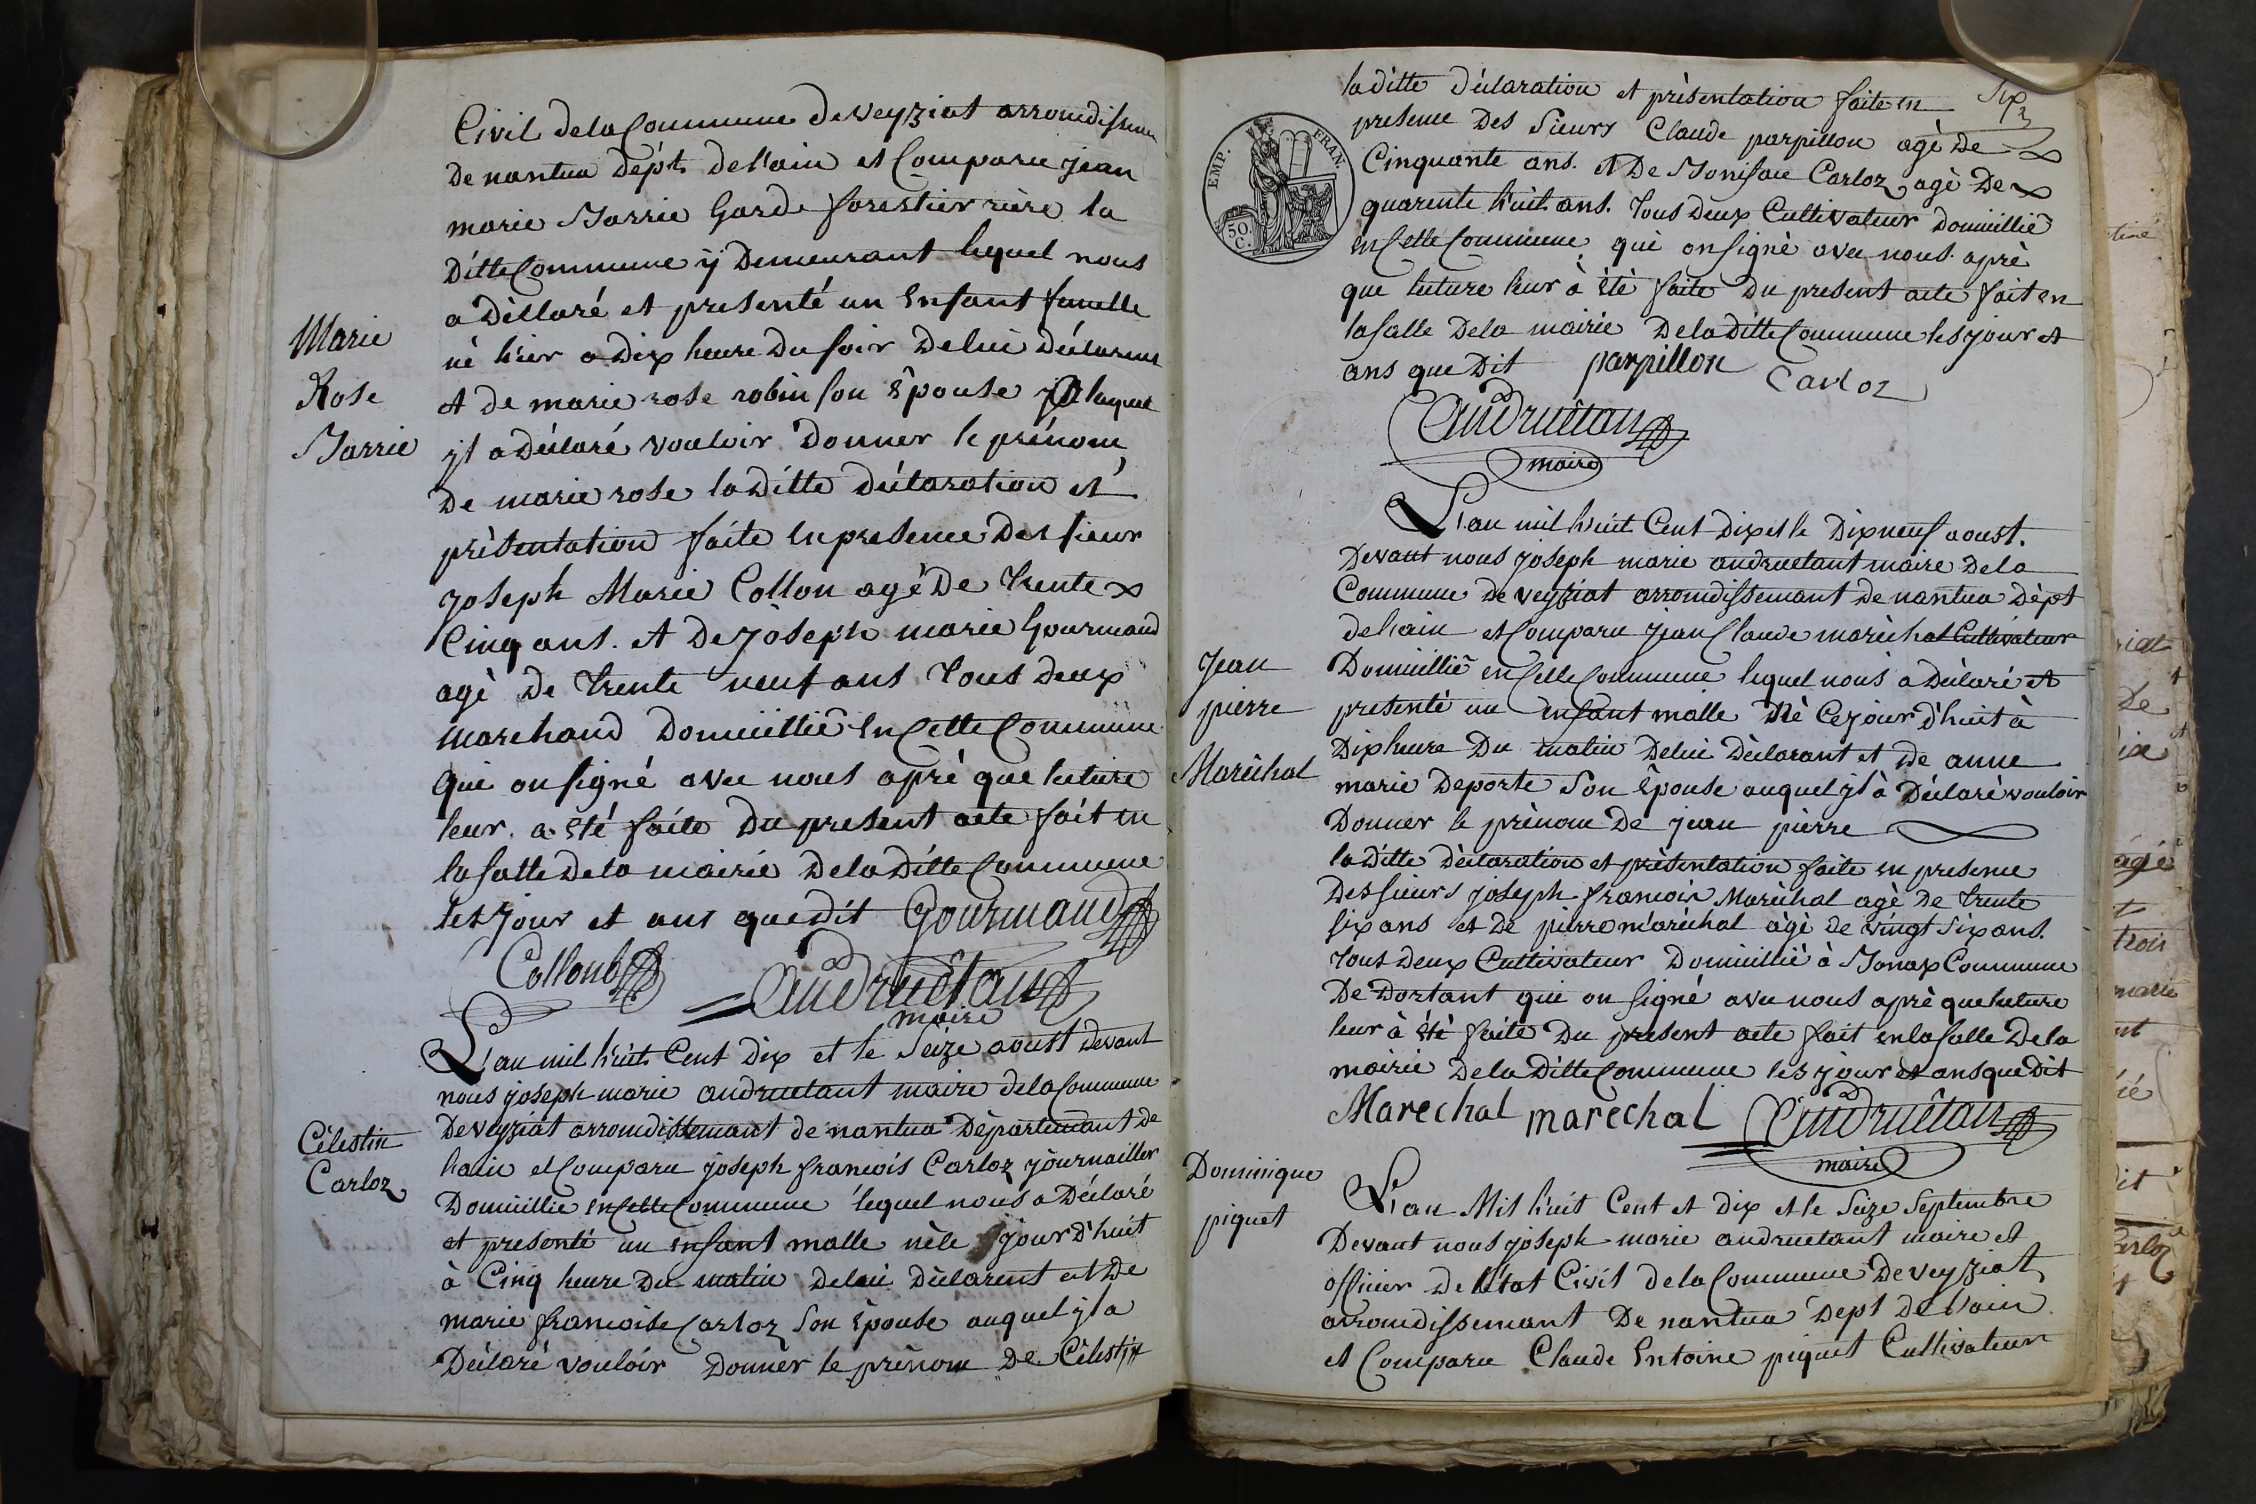 Civil dela Commune de veyziat arroudissem
de nantua dépt. de l'ain et Comparu jean
marie Sarrie Garde forestier rière la
ditte Commune ÿ demeurant lequel nous
a déllaré et presenté un enfant fumelle
né hier a dix heure du soir de lui déclarent
Marie
Rose
Sarrie
et de marie rose robin son épouse a laquel
jl a déclaré vouloir donner le prénom
de marie rose la ditte déclaration et
présentation faite en presence des sieur
joseph Marie Collon agé de trente
Cinq ans. et de joseph marie Gourmand
agé de trente neuf ans tous deux
marchand domicillié en Cette Commune
qui on signé avec nous apré que lecture
leur a été faite du present acte fait en
la salle de la mairie de la ditte Commune
les jour et ans que dit Gourmand
Collomb Andruétan
maire
L'an mil huit Cent dix et le seize aoust devant
nous joseph marie andruetant maire de la Commune
de veyziat arroudissemant de nantua départemant de
Célestin
Carloz
l'ain et Comparu joseph francois Carloz journailler
domicillie en Cette Commune lequel nous a déclaré
et presenté un enfant malle né le jour d'huit
à Cinq heure du matin de lui déclarent et de
marie francoise Carloz son épouse auquel jl a
déclaré vouloir donner le prénom de Célestin
six
EMP. FRAN.
50.
C.
la ditte déclaration et présentation faite en
presence des sieurs Claude parpillon agé de
Cinquante ans. et de Boniface Carloz agé de
quarente huit ans. tous deux Cultivateur domicillié
en Cette Commune qui on signé avec nous apré
que lecture leur à été faite du present acte fait en
la salle de la mairie de la ditte Commune les jour et
ans que dit parpillon Carloz
Andruétan
maire
L'an mil huit Cent dix et le dix neuf aoust.
devant nous joseph marie andruetant maire de la
Commune de veyziat arroudissemant de nantua dépt
de l'ain et Comparu jean Claude maréchal Cultivateur
Jean
pierre
Maréchal
domicillié en Cette Commune lequel nous a déclaré et
presenté un enfant malle né Ce jour d'huit à
dix heure du matin de lui déclarant et de anne
marie deporte son épouse auquel jl à déclaré vouloir
donner le prénom de jean pierre
la ditte déclaration et présentation faite en presence
des sieurs joseph francois Maréchal agé de trente
six ans et de pierre maréchal agé de vingt six ans.
tous deux Cultivateur domicillié à Bonaz Commune
de dortant qui on signé avec nous apré que lecture
leur à été faite du present acte fait en la salle de la
mairie de la ditte Commune les jour et ans que dit
Marechal marechal Andruétan
maire
Dominique
piquet
L'an Mil huit Cent et dix et le seize septembre
devant nous joseph marie andruetant maire et
officier de l'état Civil de la Commune de veyziat
arroudissemant de nantua dept de l'ain
et Comparu Claude Entoine piquet Cultivateur